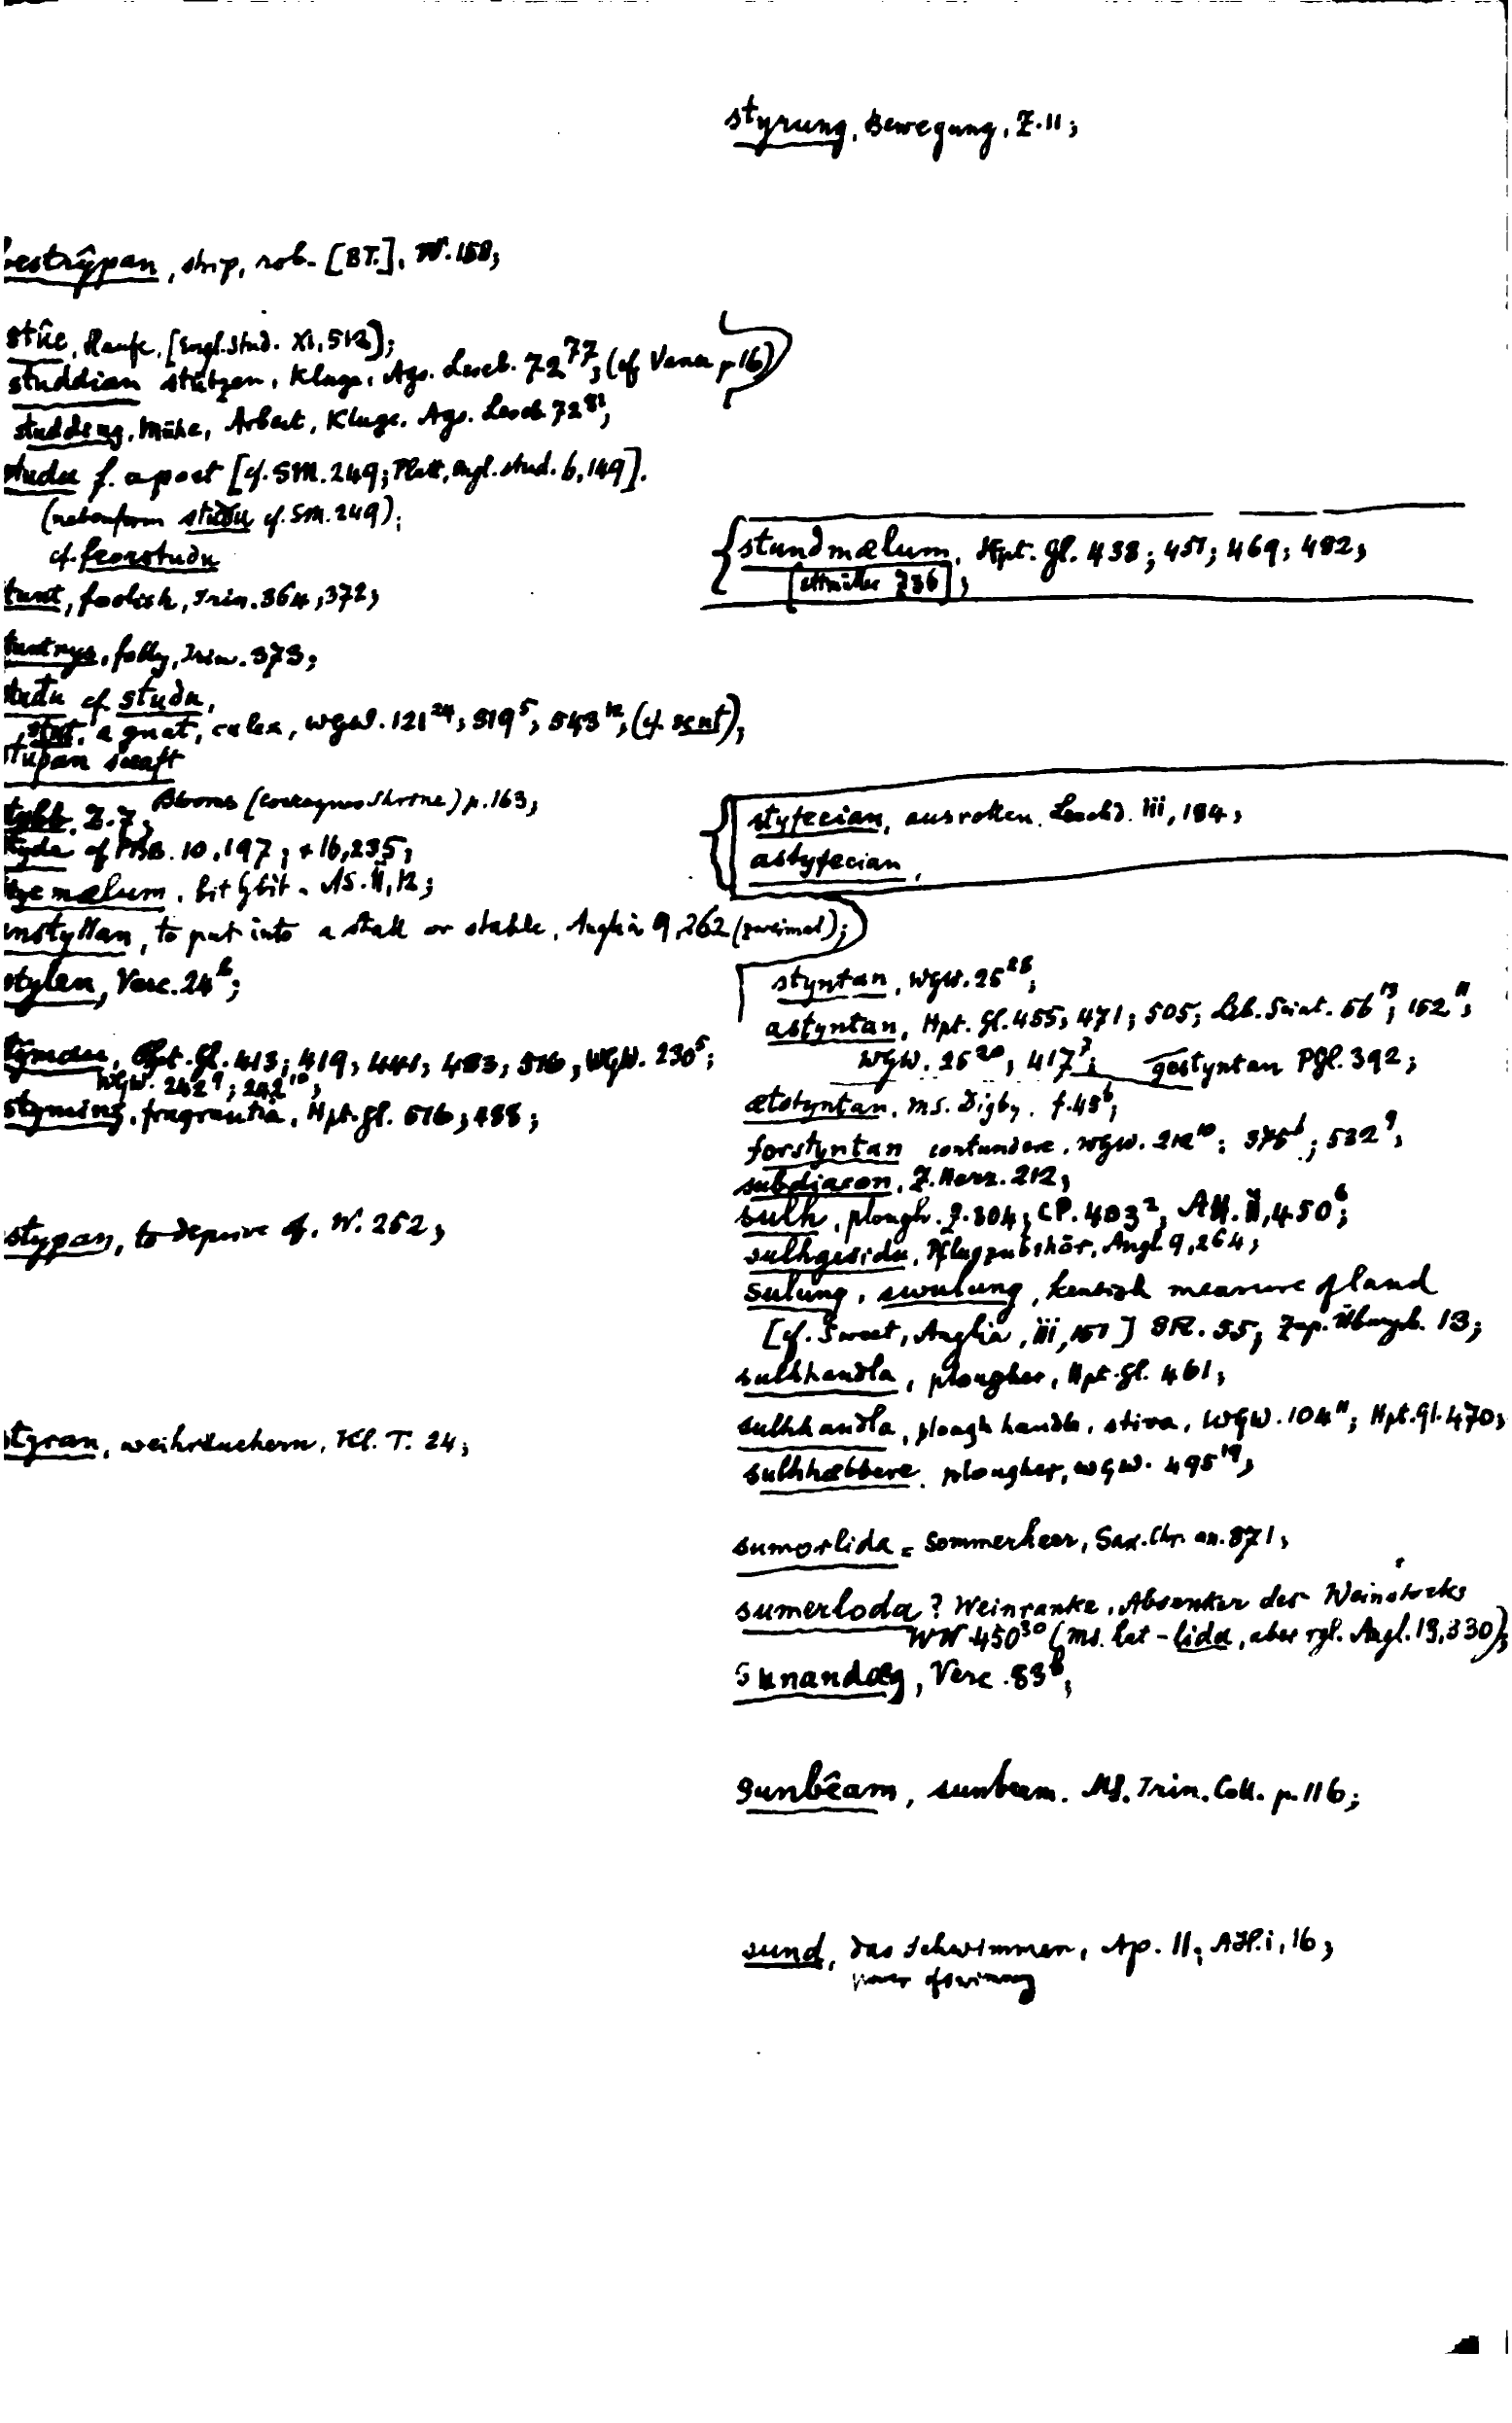 bestrŷpan, strip, rob. [BT.], W. 158;
stûc, Haufe, [Engl. Stud. XI, 512];
studdian stützen, Kluge, Ags. Leseb. 72⁷⁷; (cf. p 16)
studding, Mühe, Arbeit, Kluge. Ags. Leseb. 72⁸¹;
studu f. a post [cf. SM. 249; Platt, Engl. stud. 6, 149].
(nebenform stuðu cf. SM. 249);
cf. feorstudu
stunt, foolish, Trin. 364, 372;
stuntnys, folly, Trin. 373;
stuðu cf studu,
stut, a gnat, culex, WGW. 121²⁴; 319⁵; 543¹²; (cf. scnt),
stûpan sceaft
stybb. Z. 7; p. 163;
styde cf PBB. 10, 197; + 16, 235;
stycemælum, bit by bit. AS. II, 12;
instyllan, to put into a stall or stable, Anglia 9, 262 (zweimal);
stylen, Verc. 24ᵇ;
stŷman, Hpt. Gl. 413; 419; 441; 483; 516; WGW. 230⁵;
WGW. 242⁹; 242¹⁰;
styming, fragrantia, Hpt. gl. 516; 488;
stypan, to deprive of. W. 252;
styran, weihräuchern, Kl. T. 24;
styrung, Bewegung, Z. 11;
stundmælum, Hpt. gl. 438; 451; 469; 482;
[Ettmüller 736];
styfecian, ausrotten. Leechd. iii, 184;
astyfecian,
styntan, WGW. 25²⁸;
astyntan, Hpt. Gl. 455; 471; 505; Lib. Scint. 56¹³; 152¹¹;
WGW. 25²⁰; 417⁷; gestyntan PGl. 392;
ætstyntan, ms. Digby, f. 43ᵇ;
forstyntan contundere, WGW. 212¹⁰; 375¹; 532⁹;
subdiacon, Z. 212;
sulh, plough. Z. 304; CP. 403²; AH. II, 450⁶;
sulhgesidu, Pflugzubehör, Angl. 9, 264;
sulung, swulung, kentish measure of land
[cf. Sweet, Anglia, iii, 151] SR. 55; Zup. Übungsb. 13;
sulhhandla, plougher, Hpt. gl. 461;
sulhhandla, plough handle, stiva, WGW. 104¹¹; Hpt. gl. 470;
sulhhæbbere, plougher, WGW. 495¹⁹;
sumorlida = Sommerheer, Sax. Chr. an. 871;
sumerloda? Weinranke, Absenker des Weinstocks
WW 450³⁰ (ms. hat -lida, aber vgl. Angl. 13, 330);
Sunandæg, Verc. 83ᵇ;
Sunbêam, sunbeam. MS. Trin. Coll. p. 116;
sund, das Schwimmen, Ap. 11; AH. i, 16;
power of swimming